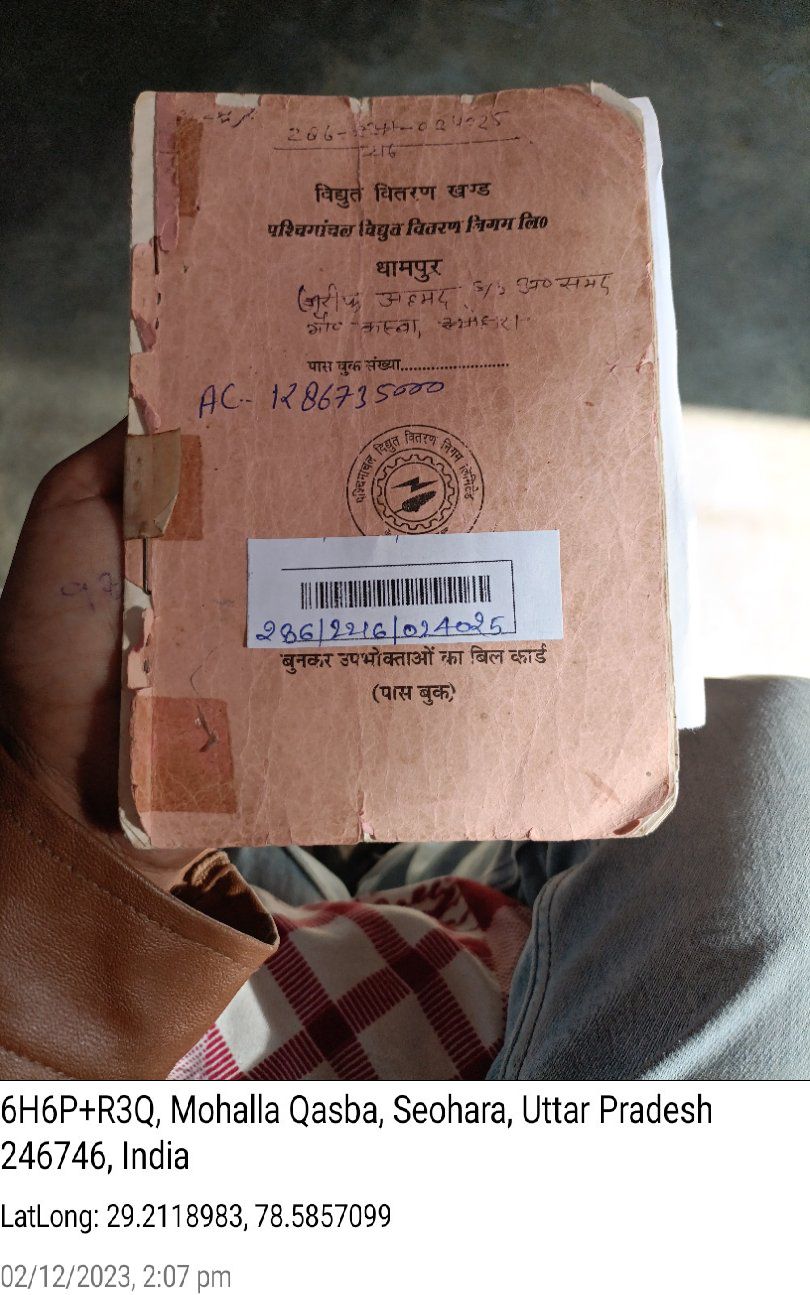 विद्युत वितरण खण्ड
पश्चिमांचल विद्युत वितरण निगम लि०
धामपुर
अहमद S/o अ० समद
पास बुक संख्या
AC- 1286735000
पश्चिमांचल विद्युत वितरण निगम लिमिटेड
286/2216/024025
बुनकर उपभोक्ताओं का बिल कार्ड
(पास बुक)
6H6P+R3Q, Mohalla Qasba, Seohara, Uttar Pradesh
246746, India
LatLong: 29.2118983, 78.5857099
02/12/2023, 2:07 pm